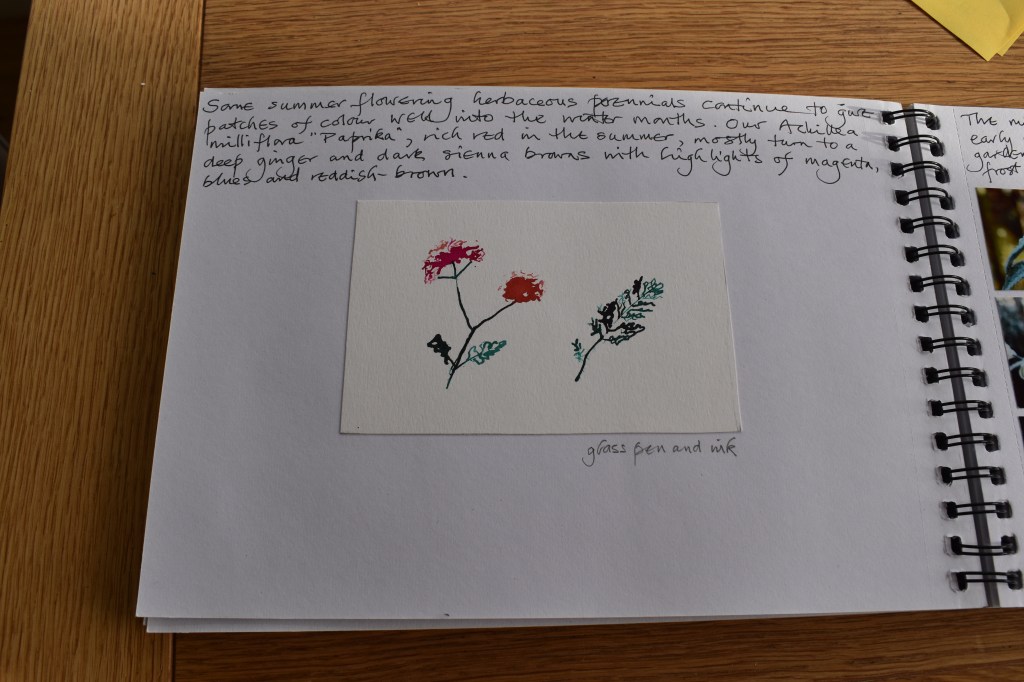 Some summer flowering herbaceous perennials continue to give
patches of colour well into the winter months. Our Achillea
"milliflora "Paprika", rich red in the summer, mostly turn to a
deep ginger and dark sienna browns with highlights of magenta,
blues and reddish-brown.
glass pen and ink
The
early
garden
frost